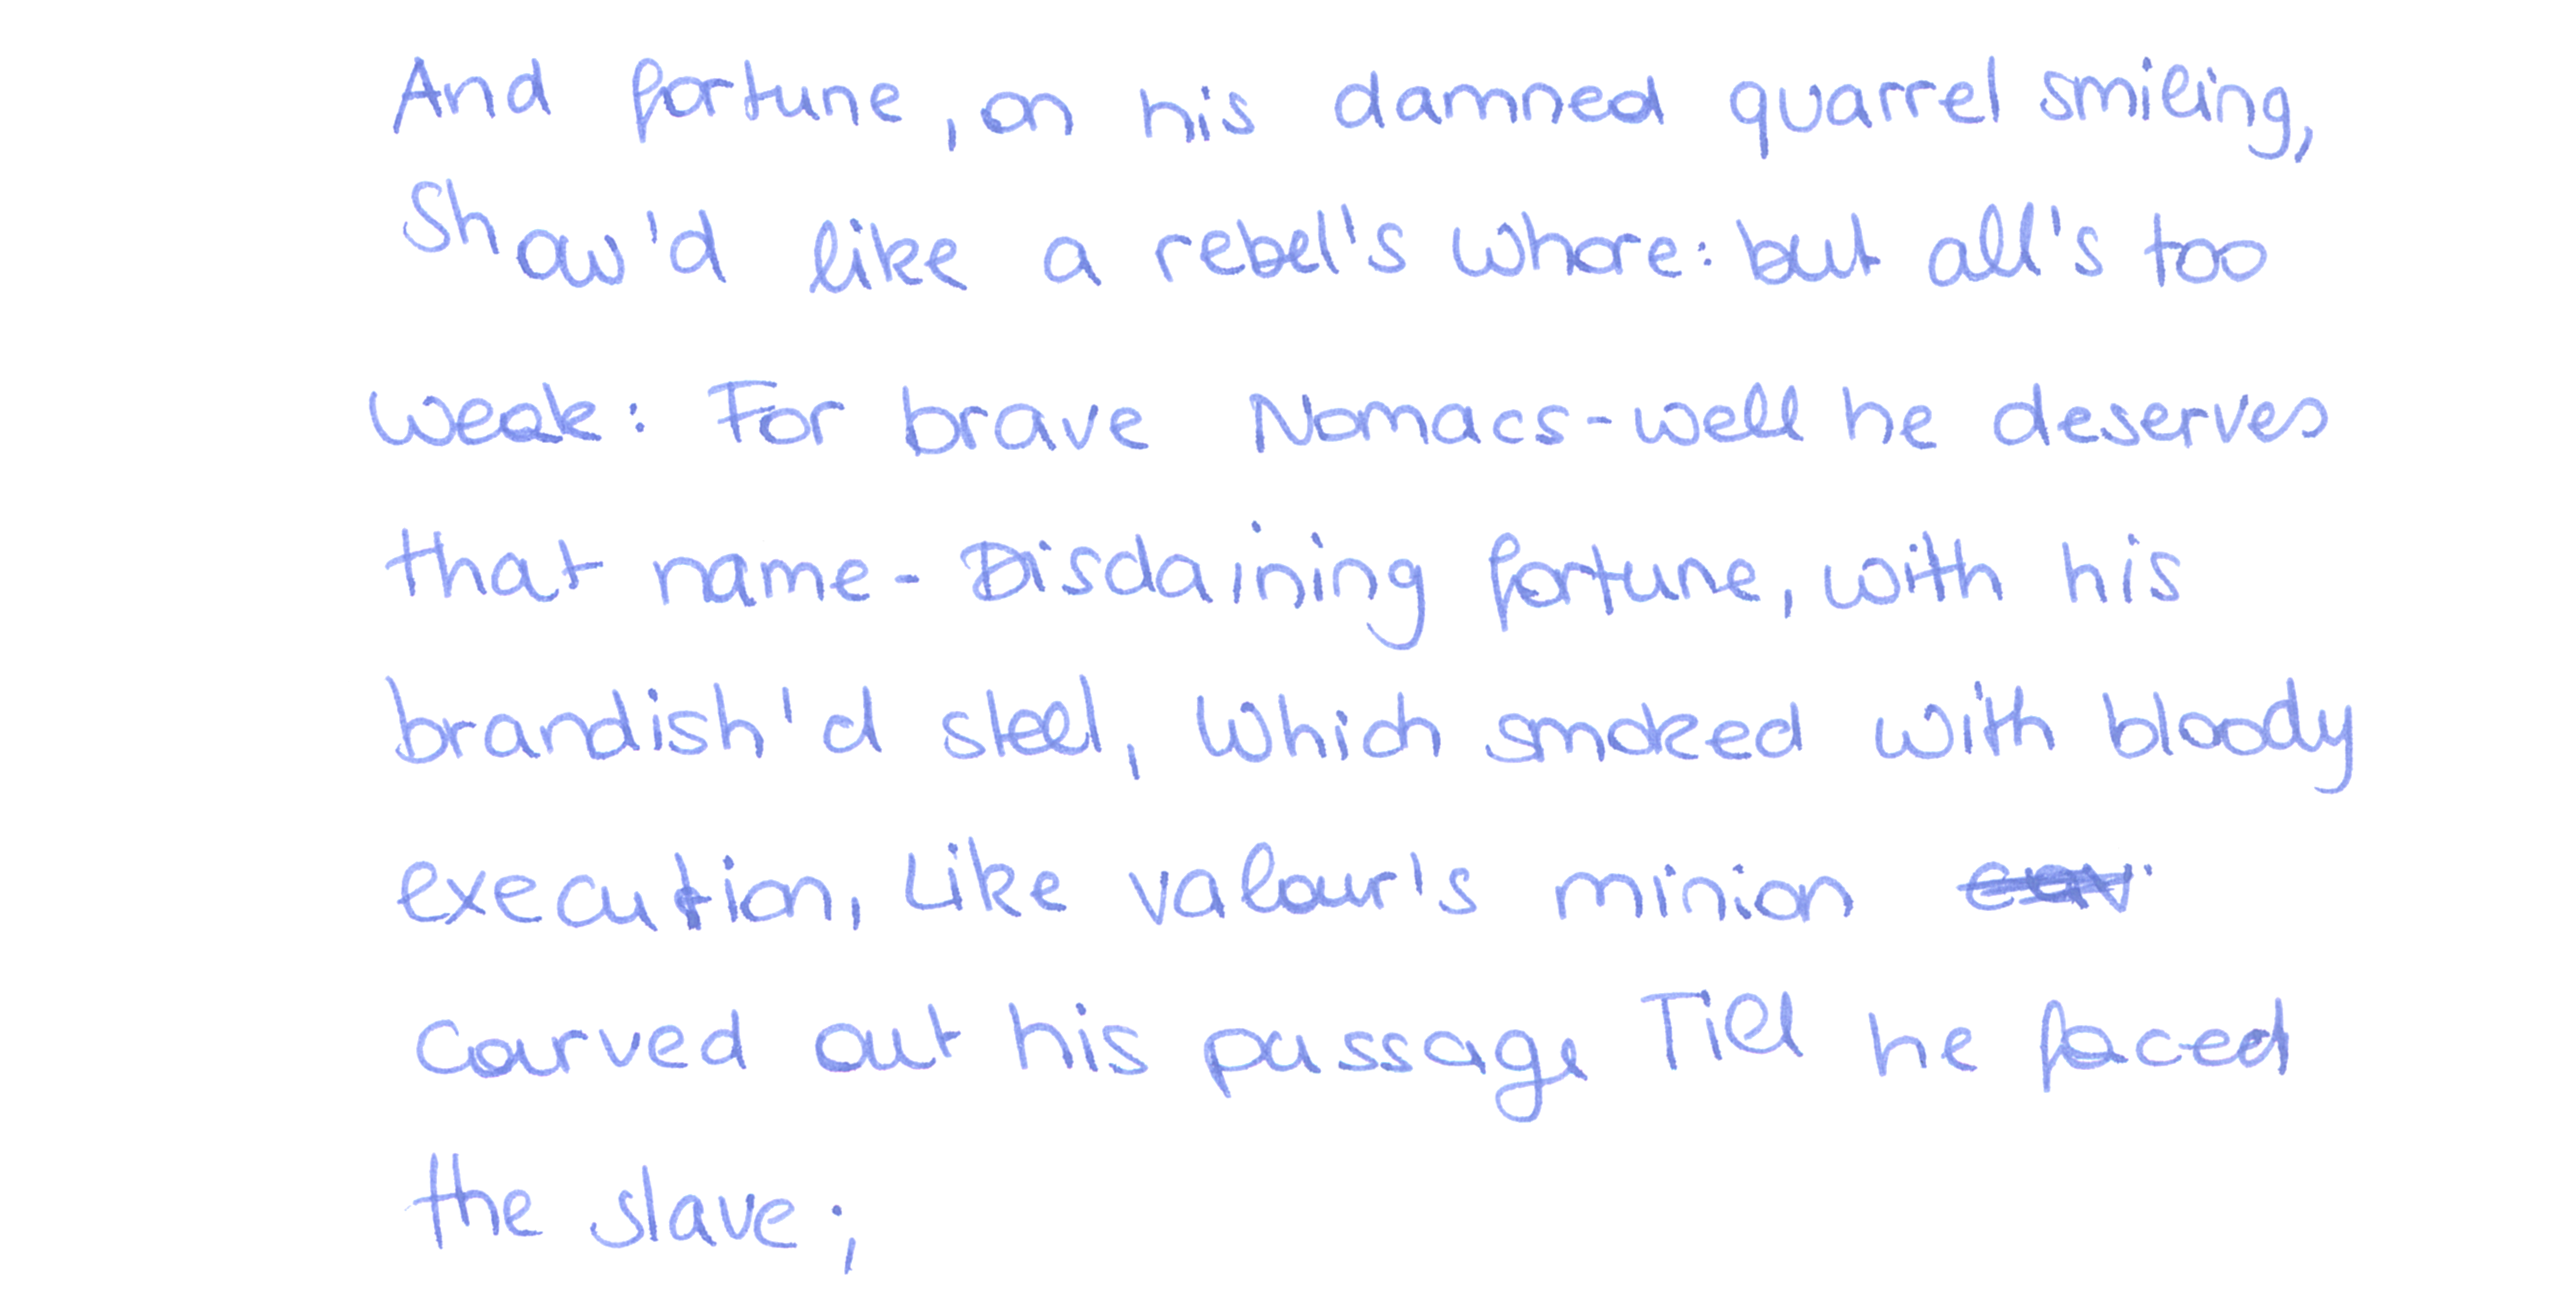 And fortune, on his damned quarrel smiling,
Show'd like a rebel's whore: but all's too
weak: For brave Nomacs-well he deserves
that name- Disdaining fortune, with his
brandish'd steel, Which smoked with bloody
execution, Like valour's minion
carved out his passage Till he faced
the slave;